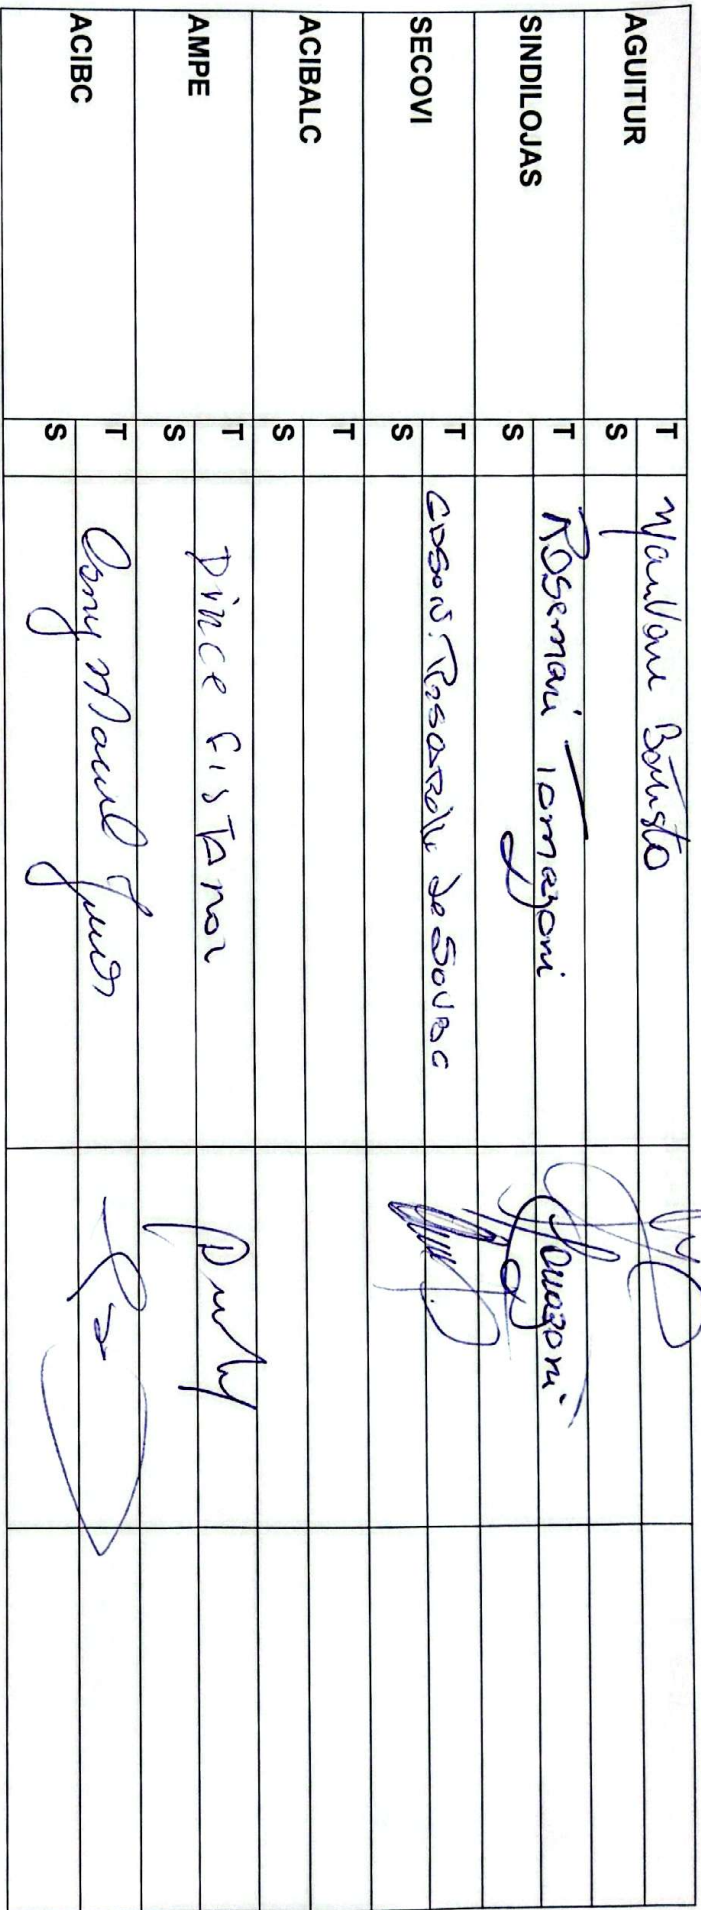 AGUITUR
T Batista
S
SINDILOJAS
T Rosemari Tomazoni Tomazoni
S
SECOVI
T de Souza
S
ACIBALC
T
S
AMPE
T Dirce Fistarol
S
ACIBC
T Osny Maciel Junior
S